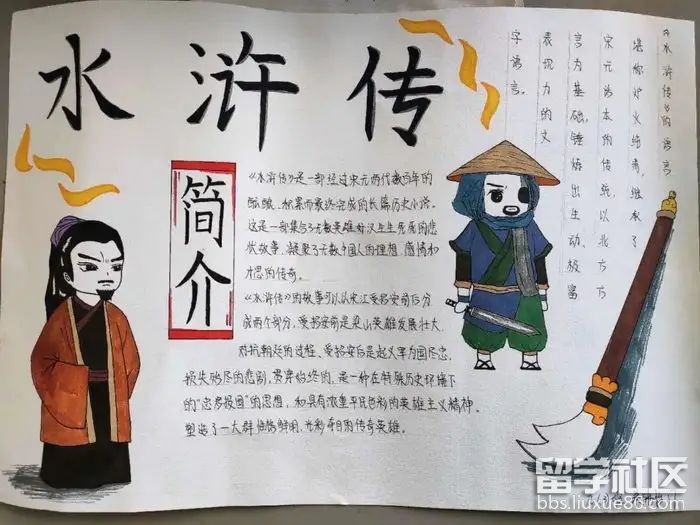 水浒传
简介
《水浒传》是一部经过宋元两代数百年的
酝酿、积累而最终完成的长篇历史小说。
这是一部集合了无数英雄好汉与生死的悲
伏故事,凝聚了无数中国人的理想、感情和
才思的传奇。
《水浒传》的故事可以从宋江受招安前后分
成两个部分,受招安前是梁山英雄发展壮大
对抗朝廷的过程、受招安后是起义军为国尽忠,
损失殆尽的悲剧。贯穿始终的,是一种在特殊历史环境下
的"忠君报国"的思想,和具有浓重平民色彩的英雄主义精神。
塑造了一大群性格鲜明、光彩夺目的传奇英雄。
《水浒传》的语言
堪称炉火纯青,继承了
宋元话本的传统,以北方方
言为基础,锤炼出生动、极富
表现力的文
字语言。
留学社区
bbs.liuxue86.com